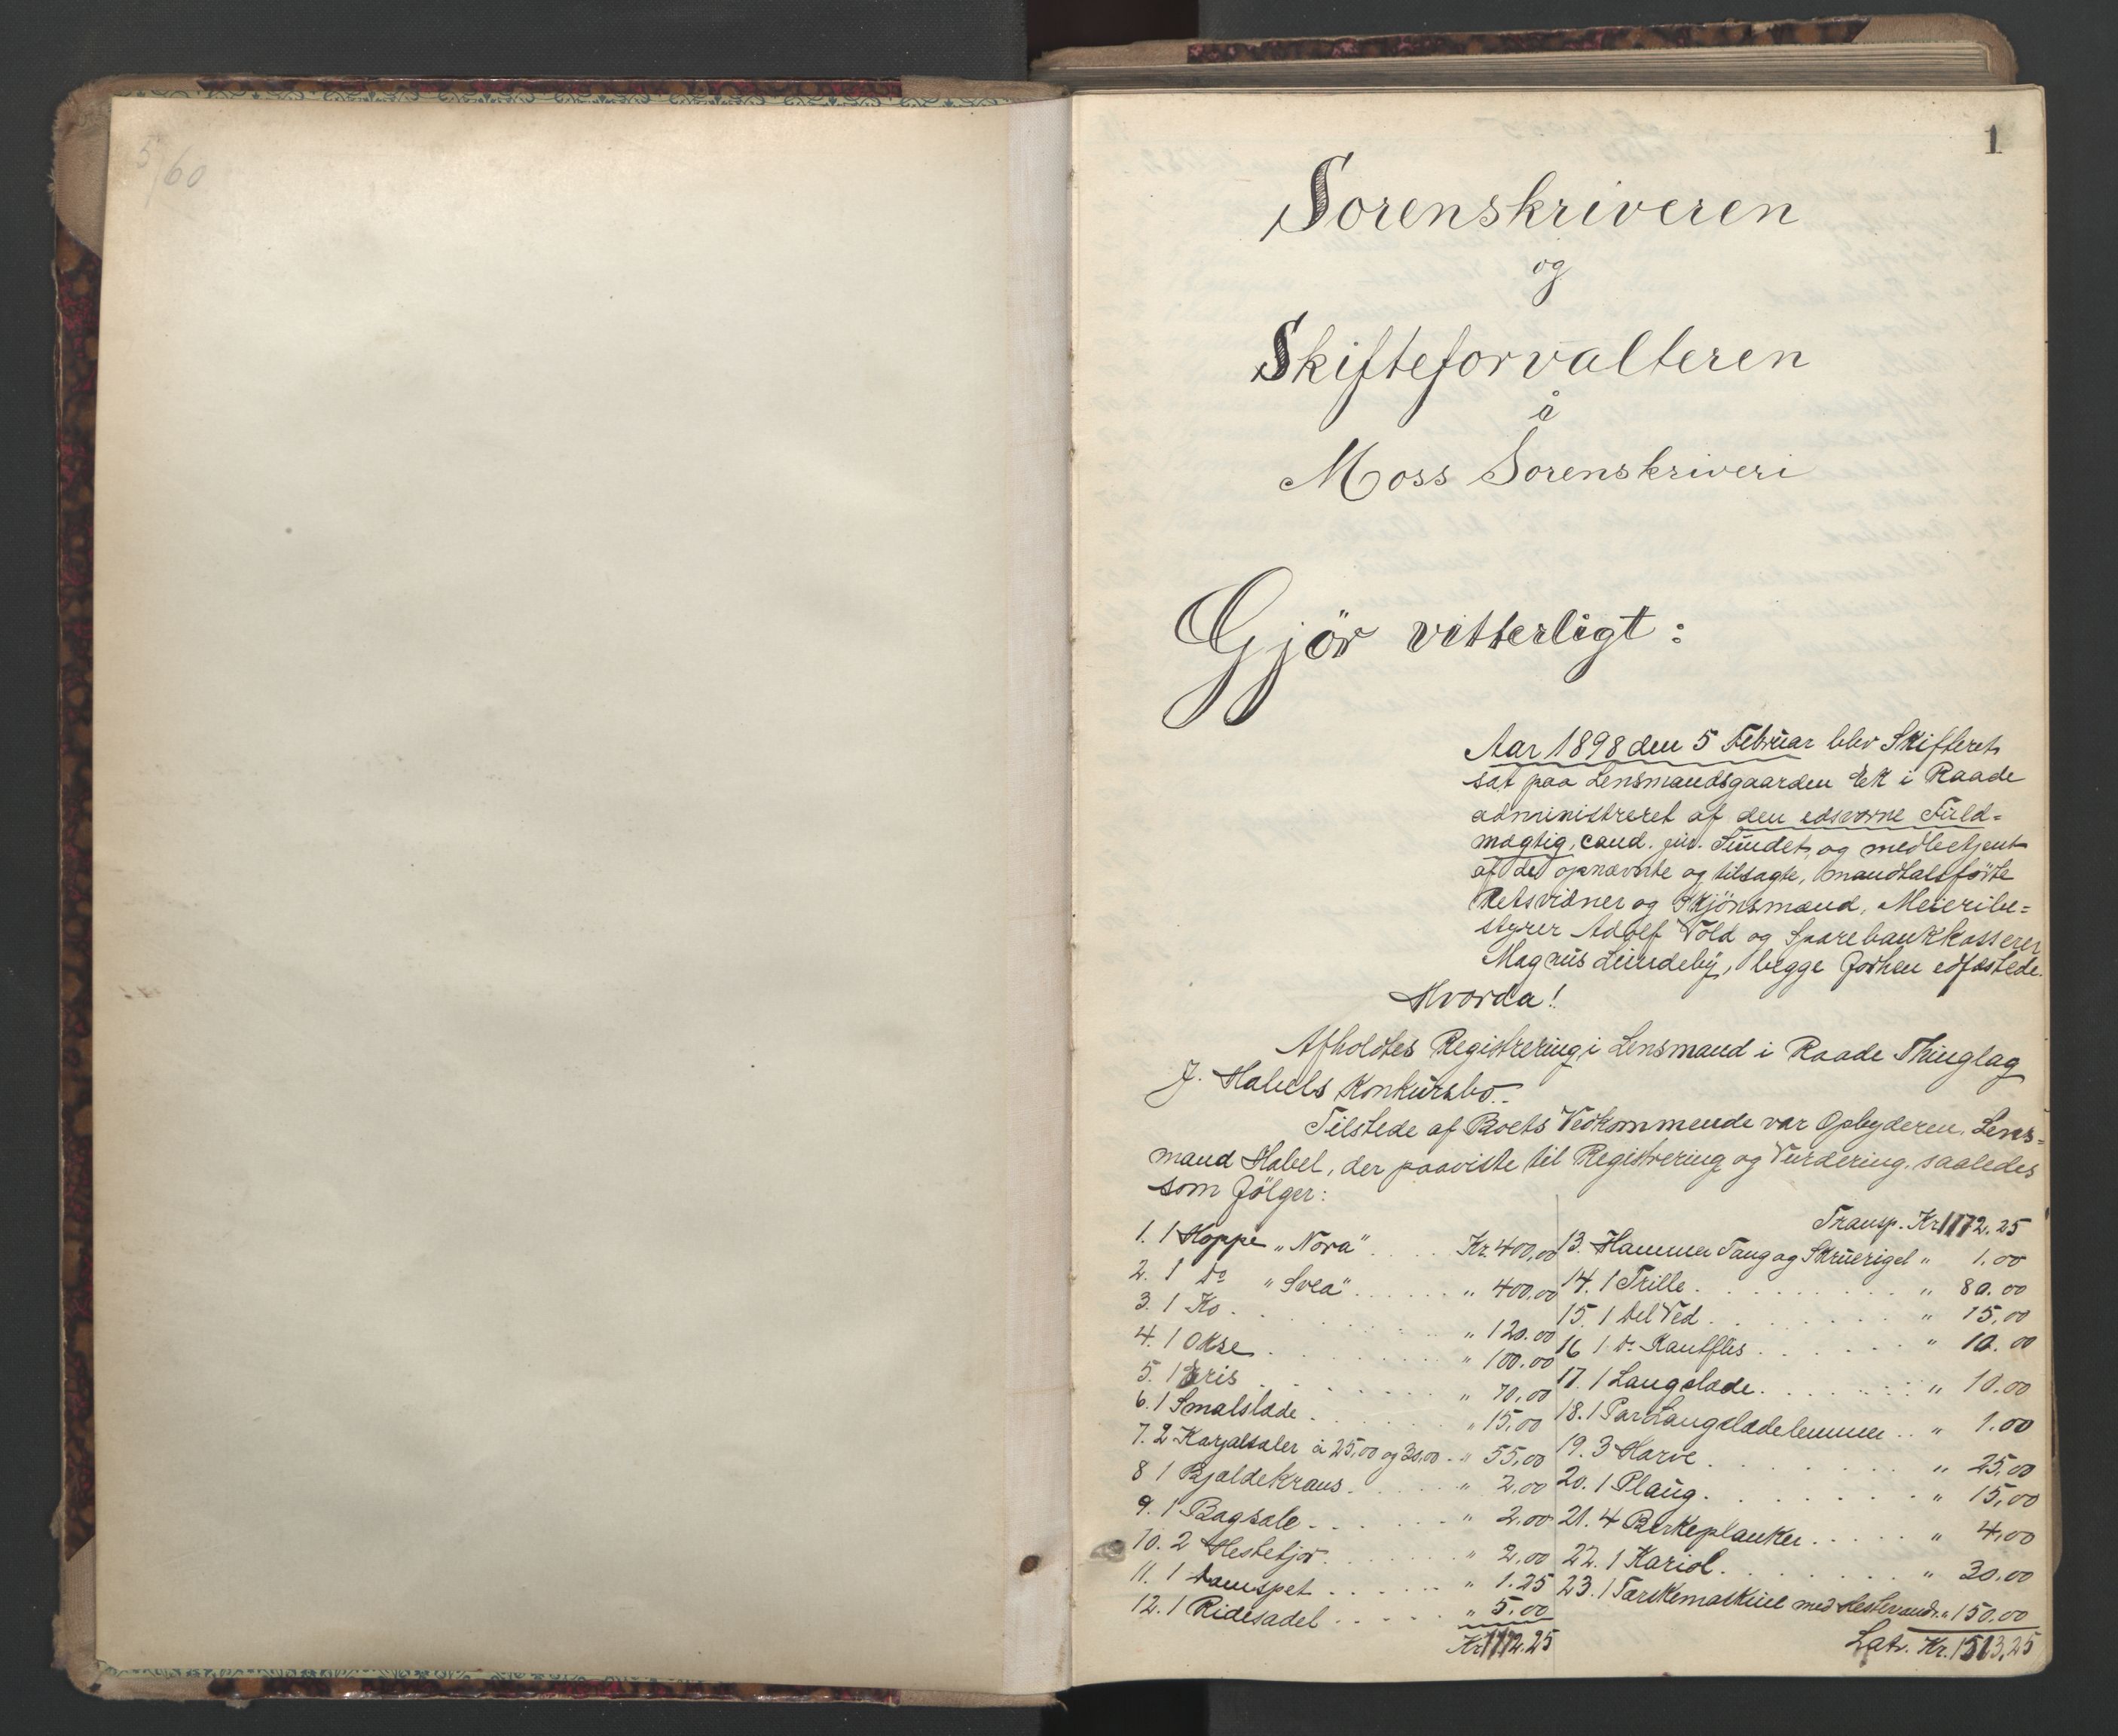 5/60
1
Sorenskriveren
og
Skifteforvalteren
i
Moss Sorenskriveri
Gjör vitterligt:
Aar 1898 den 5 Februar blev Skifteret
sat paa Lensmandsgaarden Ek i Raade
administreret af den edsvorne Fuld=
mægtig, cand. jur. Sundet, og medbetjent
af de opnævnte og tilsagte, mandtalsförte
Retsvidner og Skjönsmænd, Meieribe=
styrer Adolf Vold og Sparebankkasserer
Magnus Lundeby, begge forhen edfæstede.
Hvorda!
Afholdtes Registrering i Lensmand i Raade Thinglag
J. Habels Konkursbo.
Tilstede af Boets Vedkommende var Opbyderen, Lens=
mand Habel, der paaviste til Registrering og Vurdering, saaledes
som fölger:
1. 1 Hoppe „Nora" .... Kr. 400,00
2. 1 do „Svea" ...... " 400,00
3. 1 Ko ........ " 120.00
4. 1 Okse ......... " 100.00
5. 1 Gris ........ " 70,00
6. 1 Smalslæde ...... " 15,00
7. 2 Karjolsæler à 25,00 og 30,00 .. " 55,00
8 1 Bjældekrans ..... " 2,00
9. 1 Bagsæle ...... " 2,00
10. 2 Hestetjor ....... " 2,00
11. 1 Damspet ...... " 1.25
12. 1 Ridesadel ..... " 5.00
Kr. 1172.25
Transp. Kr 1172.25
13. Hammer Tang og Skruerigel " 1.00
14. 1 Trille ......... " 80.00
15. 1 Del Ved ........ " 15,00
16 1 do Kantflis ...... " 10.00
17. 1 Langslæde ....... " 10.00
18. 1 Par Langslædelemmer .. " 1.00
19. 3 Harve ........ " 25,00
20. 1 Plaug ........ " 15,00
21. 4 Berkeplanker ..... " 4,00
22. 1 Kariol ........ " 30.00
23. 1 Tærskemaskine med Hestevandr. " 150,00
Latr. Kr. 1513,25